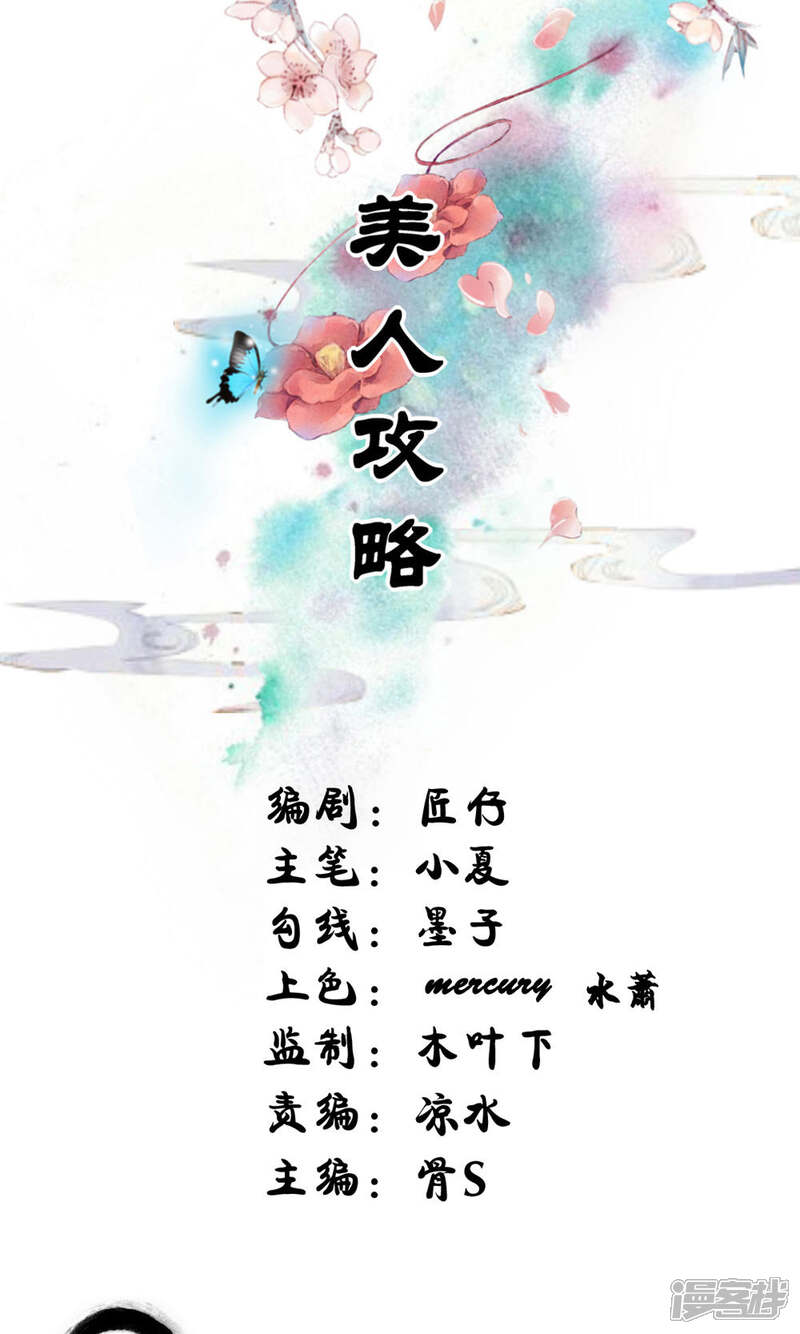 美人攻略
编剧：匠仔
主笔：小夏
勾线：墨子
上色：mercury 水萧
监制：木叶下
责编：凉水
主编：骨S
漫客栈